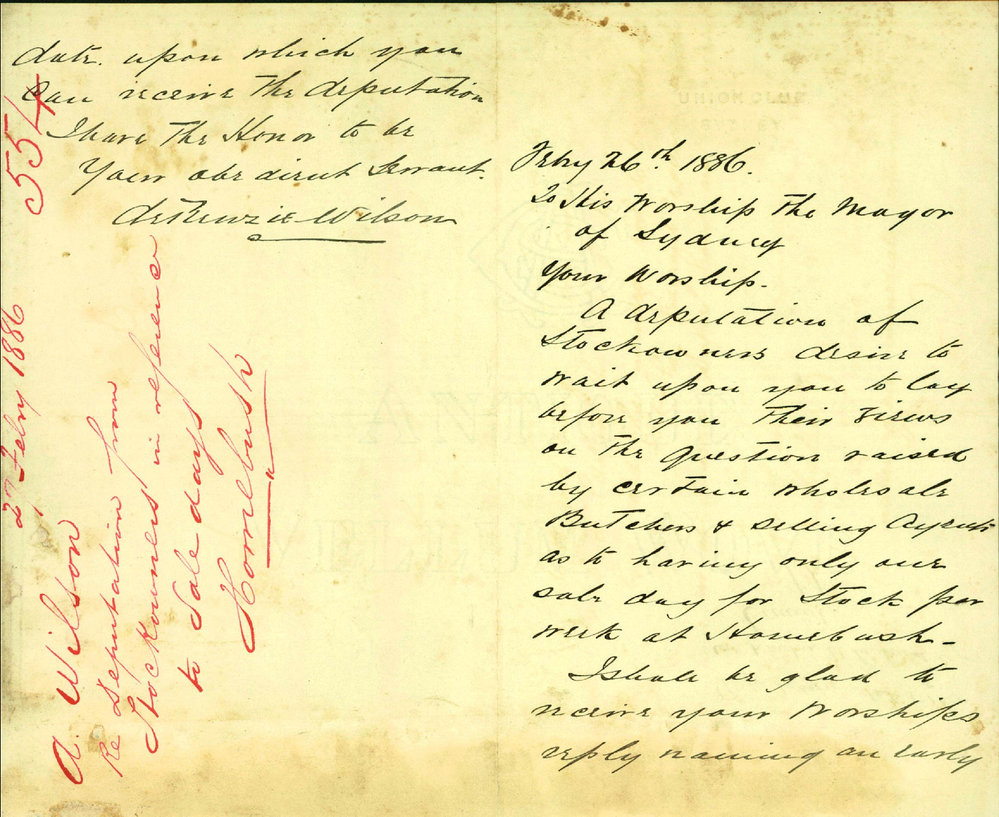 Feby 26th 1886.
To His Worship the Mayor
of Sydney
Your Worship.
A deputation of
Stockowners desire to
wait upon you to lay
before you their views
on the Question raised
by certain wholesale
Butchers & Selling Agents
as to having only one
sale day for Stock per
week at Homebush -
I shall be glad to
receive your Worships
reply naming an early
date upon which you
can receive the deputation
I have the Honor to be
Your obedient Servant.
Wilson
554
27 Feby 1886
A. Wilson
Re Deputation from
Stockowners in reference
to Sale days
Homebush